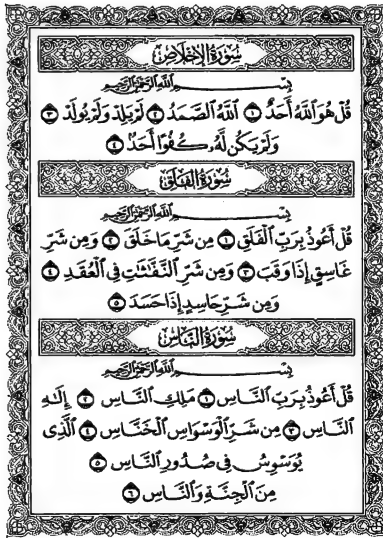 سورة الإخلاص
بسم الله الرحمن الرحيم
قُلْ هُوَ ٱللَّهُ أَحَدٌ ١ ٱللَّهُ ٱلصَّمَدُ ٢ لَمْ يَلِدْ وَلَمْ يُولَدْ ٣
وَلَمْ يَكُن لَّهُۥ كُفُوًا أَحَدٌۢ ٤
سورة الفلق
بسم الله الرحمن الرحيم
قُلْ أَعُوذُ بِرَبِّ ٱلْفَلَقِ ١ مِن شَرِّ مَا خَلَقَ ٢ وَمِن شَرِّ
غَاسِقٍ إِذَا وَقَبَ ٣ وَمِن شَرِّ ٱلنَّفَّٰثَٰتِ فِى ٱلْعُقَدِ ٤
وَمِن شَرِّ حَاسِدٍ إِذَا حَسَدَ ٥
سورة الناس
بسم الله الرحمن الرحيم
قُلْ أَعُوذُ بِرَبِّ ٱلنَّاسِ ١ مَلِكِ ٱلنَّاسِ ٢ إِلَٰهِ
ٱلنَّاسِ ٣ مِن شَرِّ ٱلْوَسْوَاسِ ٱلْخَنَّاسِ ٤ ٱلَّذِى
يُوَسْوِسُ فِى صُدُورِ ٱلنَّاسِ ٥
مِنَ ٱلْجِنَّةِ وَٱلنَّاسِ ٦